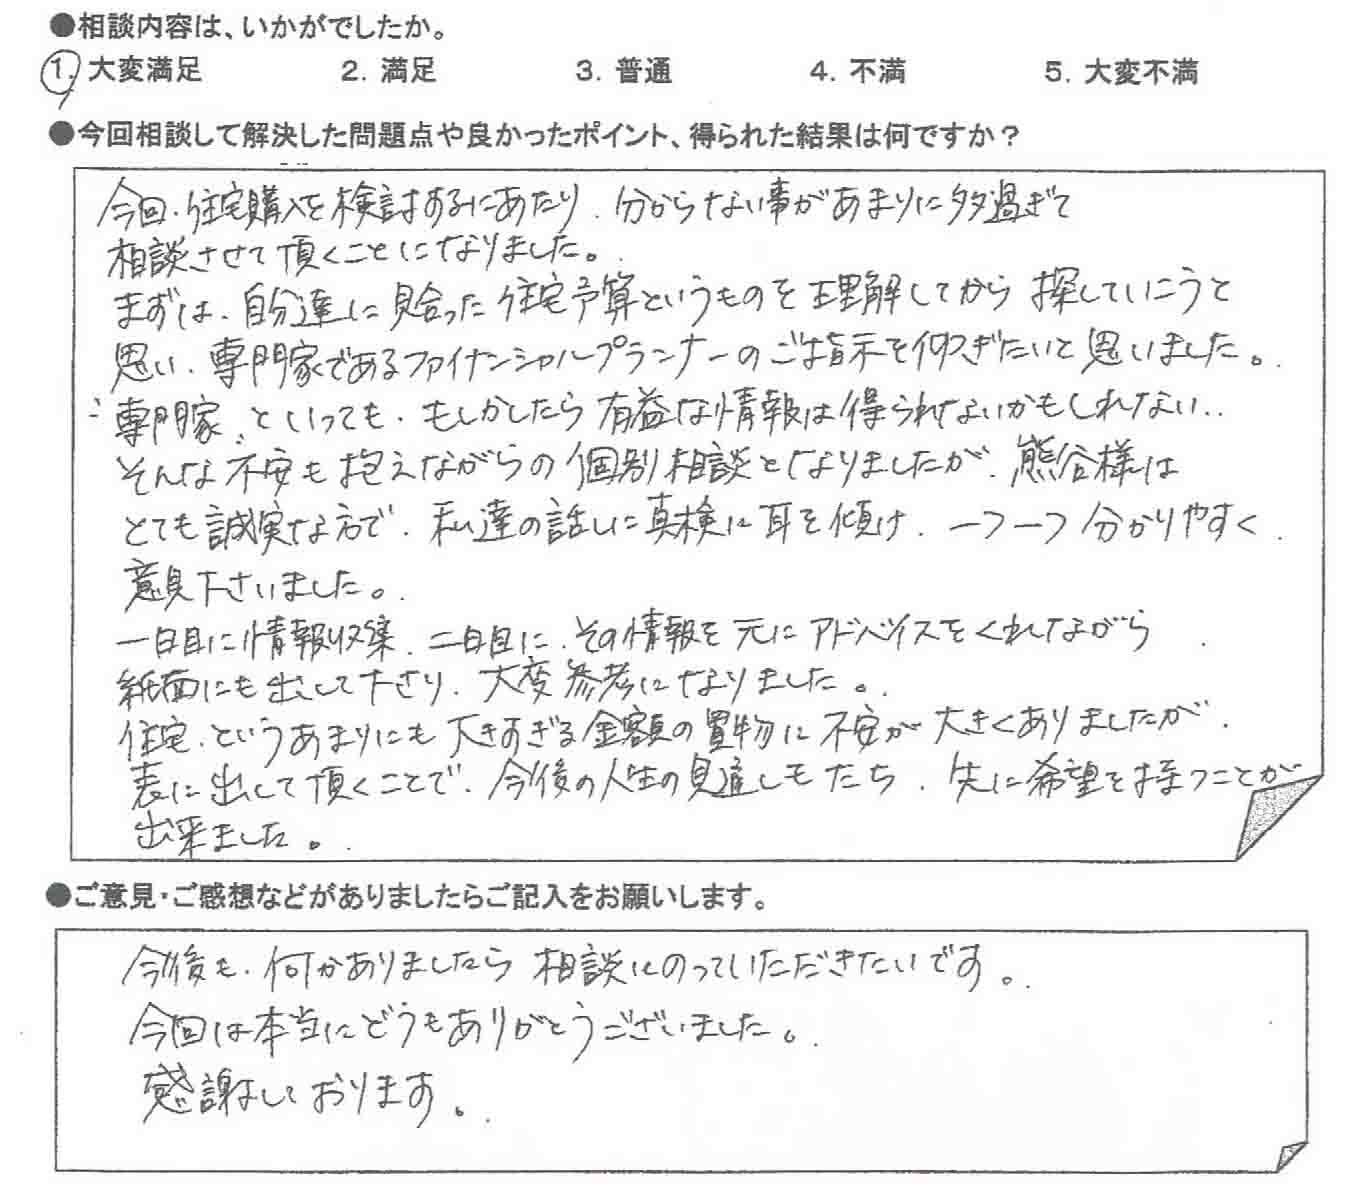 ●相談内容は、いかがでしたか。
1. 大変満足 2. 満足 3. 普通 4. 不満 5. 大変不満
●今回相談して解決した問題点や良かったポイント、得られた結果は何ですか？
今回、住宅購入を検討するにあたり、分からない事があまりに多過ぎて
相談させて頂くことになりました。
まずは、自分達に見合った住宅予算というものを理解してから探していこうと
思い、専門家であるファイナンシャルプランナーのご指示を仰ぎたいと思いました。
〝専門家〟といっても、もしかしたら有益な情報は得られないかもしれない..
そんな不安も抱えながらの個別相談となりましたが、熊谷様は
とても誠実な方で、私達の話しに真検に耳を傾け、一つ一つ分かりやすく
意見下さいました。
一日目に情報収集、二日目に、その情報を元にアドバイスをくれながら
紙面にも出して下さり、大変参考になりました。
住宅、というあまりにも大きすぎる金額の買物に不安が大きくありましたが、
表に出して頂くことで、今後の人生の見通しもたち、先に希望を持つことが
出来ました。
●ご意見・ご感想などがありましたらご記入をお願いします。
今後も、何かありましたら相談にのっていただきたいです。
今回は本当にどうもありがとうございました。
感謝しております。